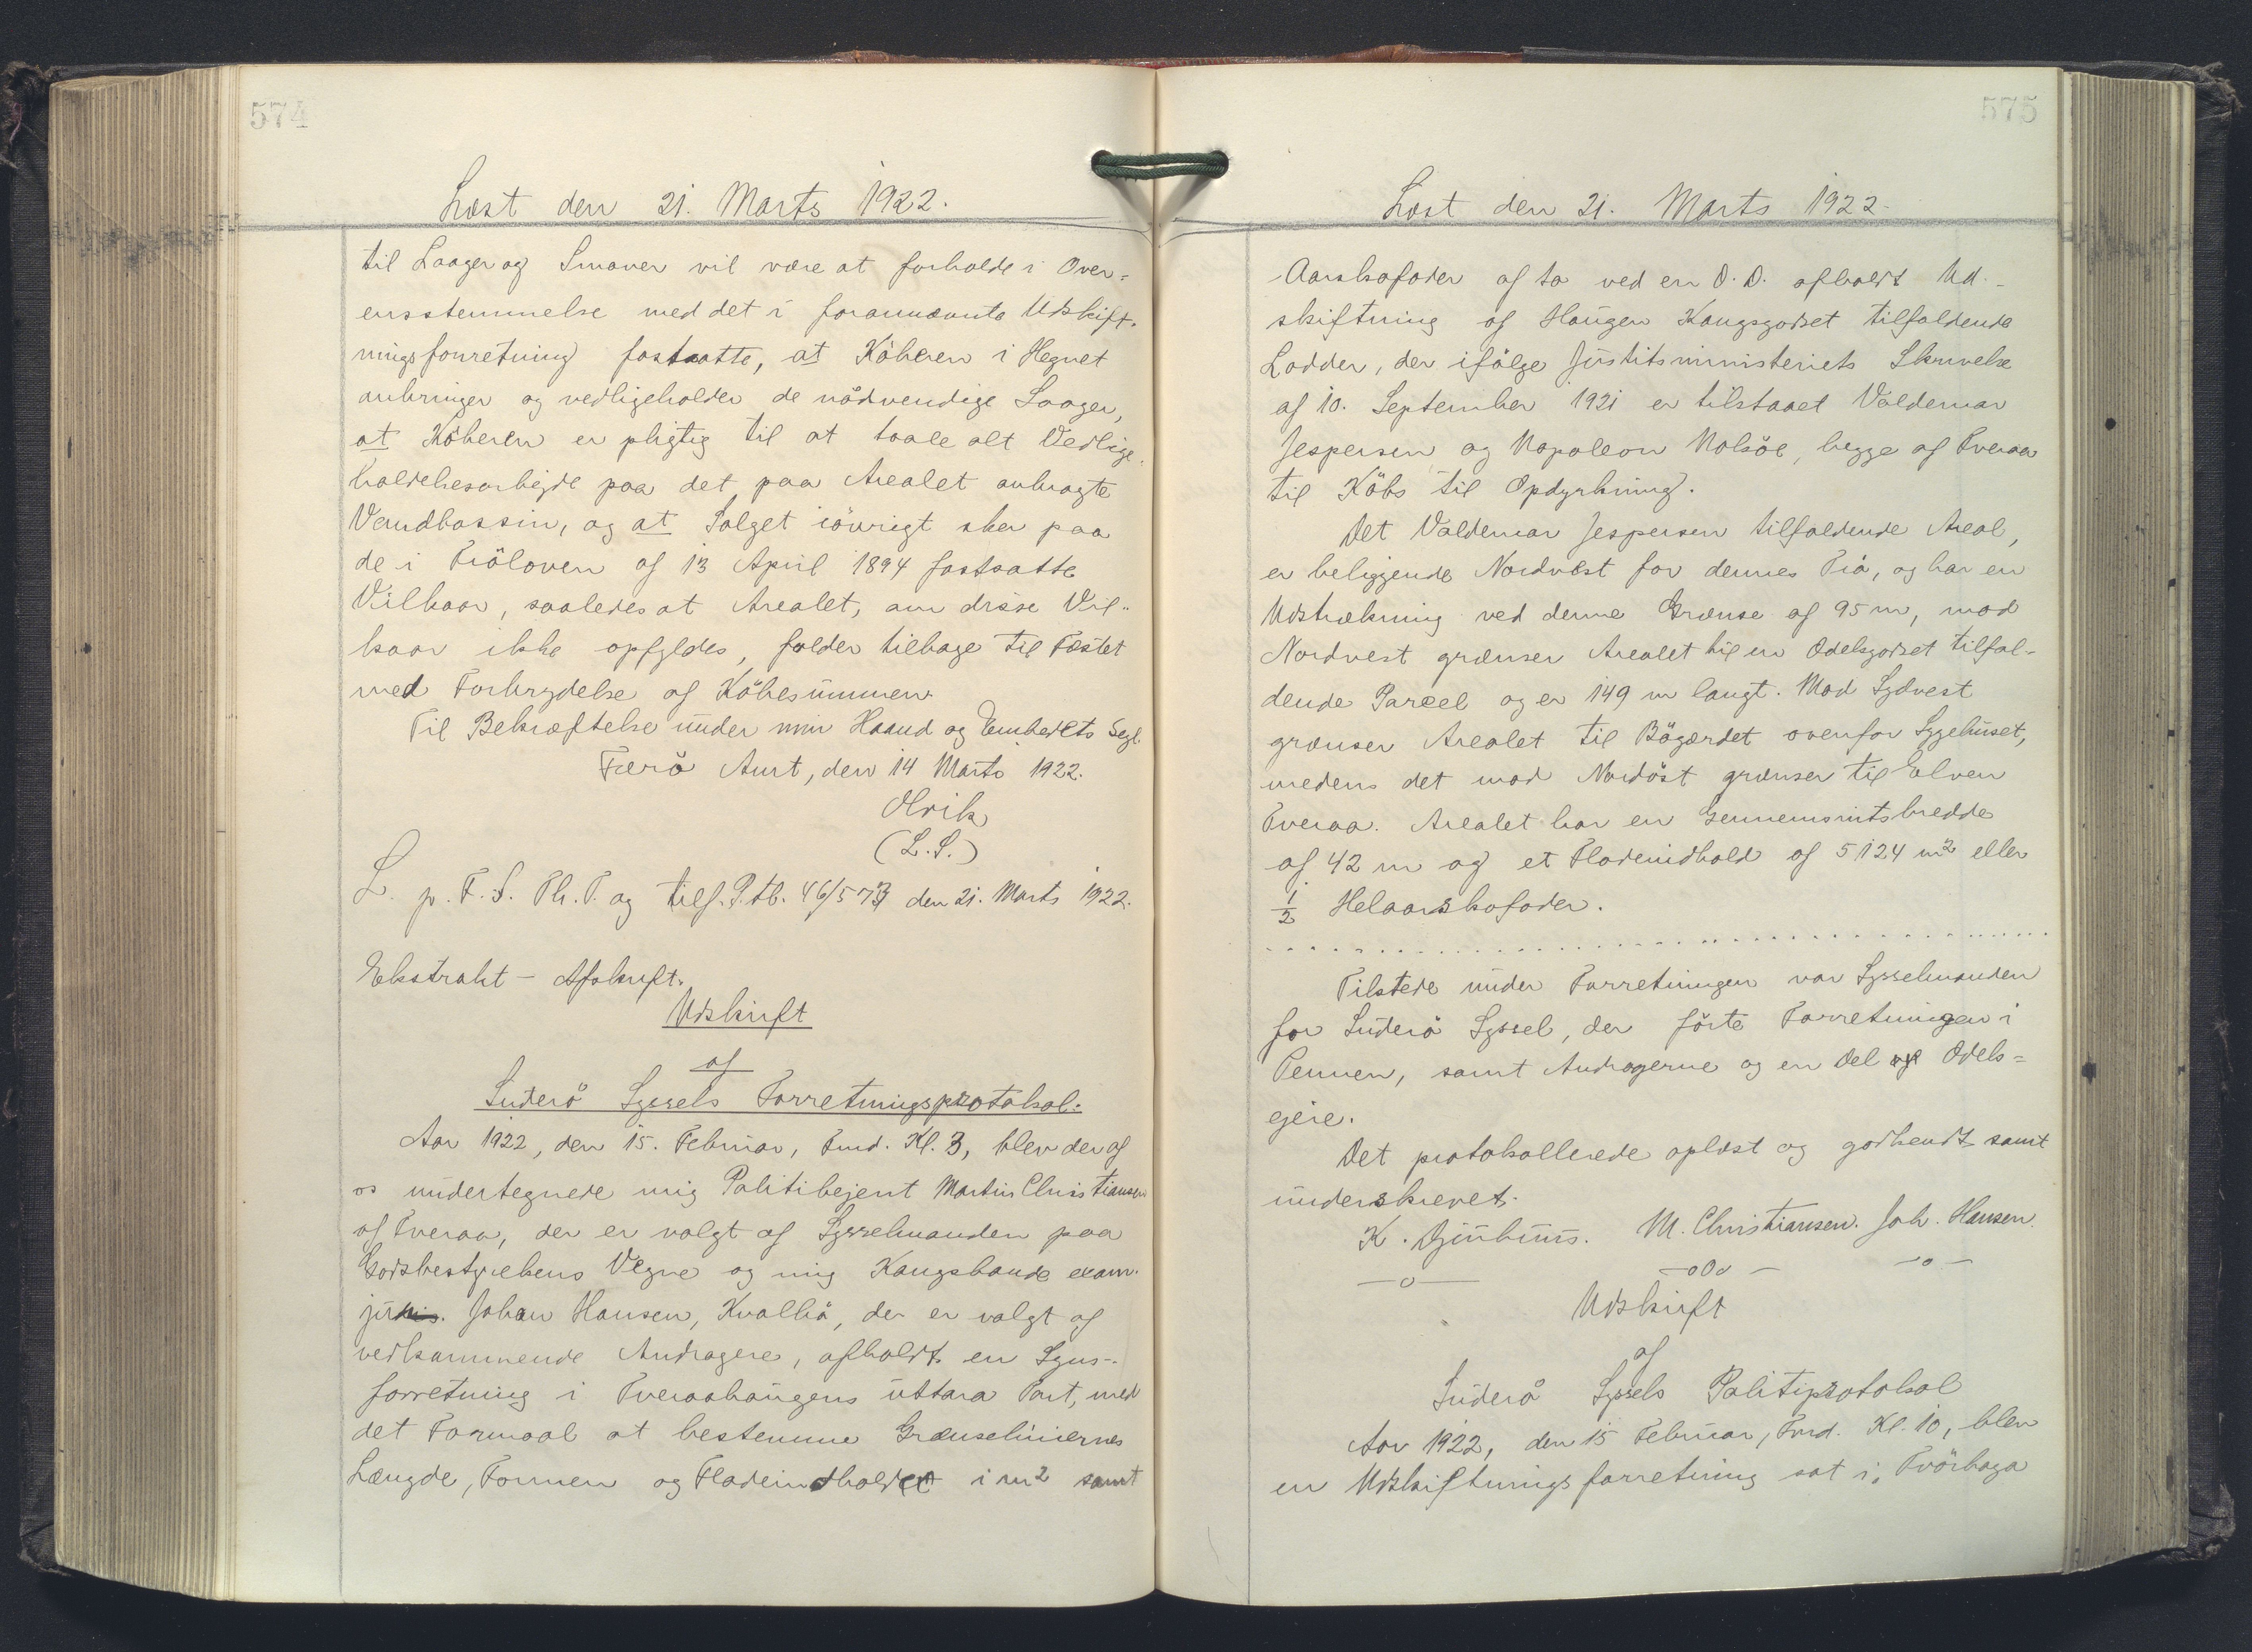 574
Læst den 21. Marts 1922.
til Laager og Smøver vil være at forholde i Over-
ensstemmelse med det i forannævnte Udskift-
ningsforretning fastsatte, at Köberen i Hegnet
anbringer og vedligeholder de nödvendige Laager,
at Köberen er pligtig til at taale alt Vedlige-
holdelsesarbejde paa det paa Arealet anbragte
Vandbassin, og at Salget iövrigt sker paa
de i Tröloven af 13 April 1894 fastsatte
Vilkaar, saaledes at Arealet, om disse Vil-
kaar ikke opfyldes, falder tilbage til Fæstet
med Fortrydelse af Köbesummen.
Til Bekræftelse under min Haand og Embedets Segl.
Færö Amt, den 14 Marts 1922.
Olrik
(L.S.)
L. p. F. S. Th. T. og tilf. P. tb. 46/573 den 21. Marts 1922.
Ekstrakt - Afskrift.
Udskrift
af
Suderö Syssels Forretningsprotokol.
Aar 1922, den 15. Februar, Fmd. Kl. 3, blev der af
os undertegnede mig Politibejent Martin Christiansen
af Tveraa, der er valgt af Sysselmanden paa
Godsbestyrelsens Vegne og mig Kongsbonde exam.
jur. Johan Hansen, Kvalbö, der er valgt af
vedkommende Andragere, afholdt en Syns-
forretning i Tveraahaugens üttara Part, med
det Formaal at bestemme Grænseliniernes
Længde, Formen og Fladeindholdet i m² samt
575
Læst den 21. Marts 1922.
Aarskofoder af to ved en D. D. afholdt Ud-
skiftning af Haugen Kongsgodset tilfaldende
Lodder, der ifölge Justitsministeriets Skrivelse
af 10. September 1921 er tilstaaet Valdemar
Jespersen og Napoleon Nolsöe, begge af Tveraa
til Köbs til Opdyrkning.
Det Valdemar Jespersen tilfaldende Areal,
er beliggende Nordvest for dennes Trö, og har en
Udstrækning ved denne Grænse af 95 m, mod
Nordvest grænser Arealet til en Odelsgodset tilfal-
dende Parcel og er 149 m langt. Mod Sydvest
grænser Arealet til Bögærdet ovenfor Sygehuset,
medens det mod Nordöst grænser til Elven
Tveraa. Arealet har en Gennemsnitsbredde
af 42 m og et Fladeindhold af 5124 m² eller
1/2 Helaarskofoder.
. . . . . . . . . . . . . . . . . . . . . . . . . . . . . .
Tilstede under Forretningen var Sysselmanden
for Suderö Syssel, der förte Forretningen i
Pennen, samt Andragerne og en Del af Odels-
ejere.
Det protokollerede oplæst og godkendt samt
underskrevet.
K. Djurhuus. M. Christiansen. Joh. Hansen.
—o— —oOo— —o—
Udskrift
af
Suderö Syssels Politiprotokol
Aar 1922, den 15 Februar, Fmd. Kl. 10, blev
en Udskiftningsforretning sat i Tvörhaga